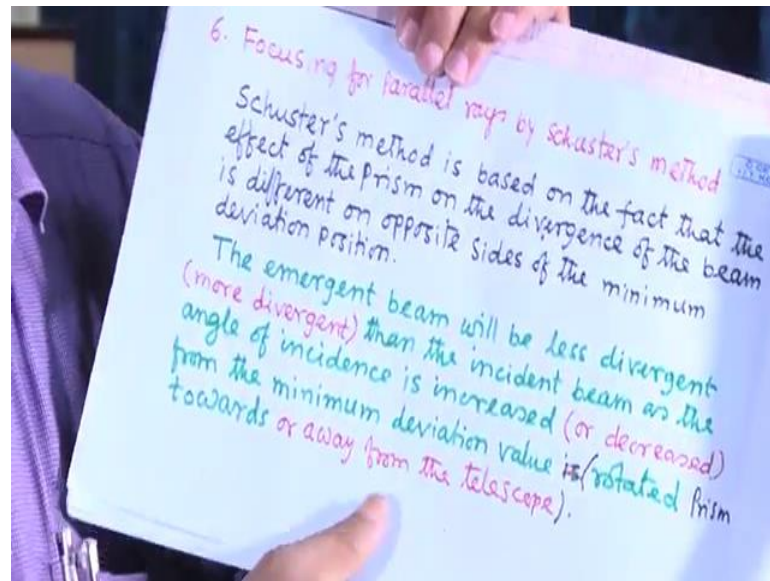 6. Focusing for parallel rays by schuster's method
Schuster's method is based on the fact that the
effect of the Prism on the divergence of the beam
is different on opposite sides of the minimum
deviation position.
The emergent beam will be less divergent
(more divergent) than the incident beam as the
angle of incidence is increased (or decreased)
from the minimum deviation value (rotated Prism
towards or away from the telescope).